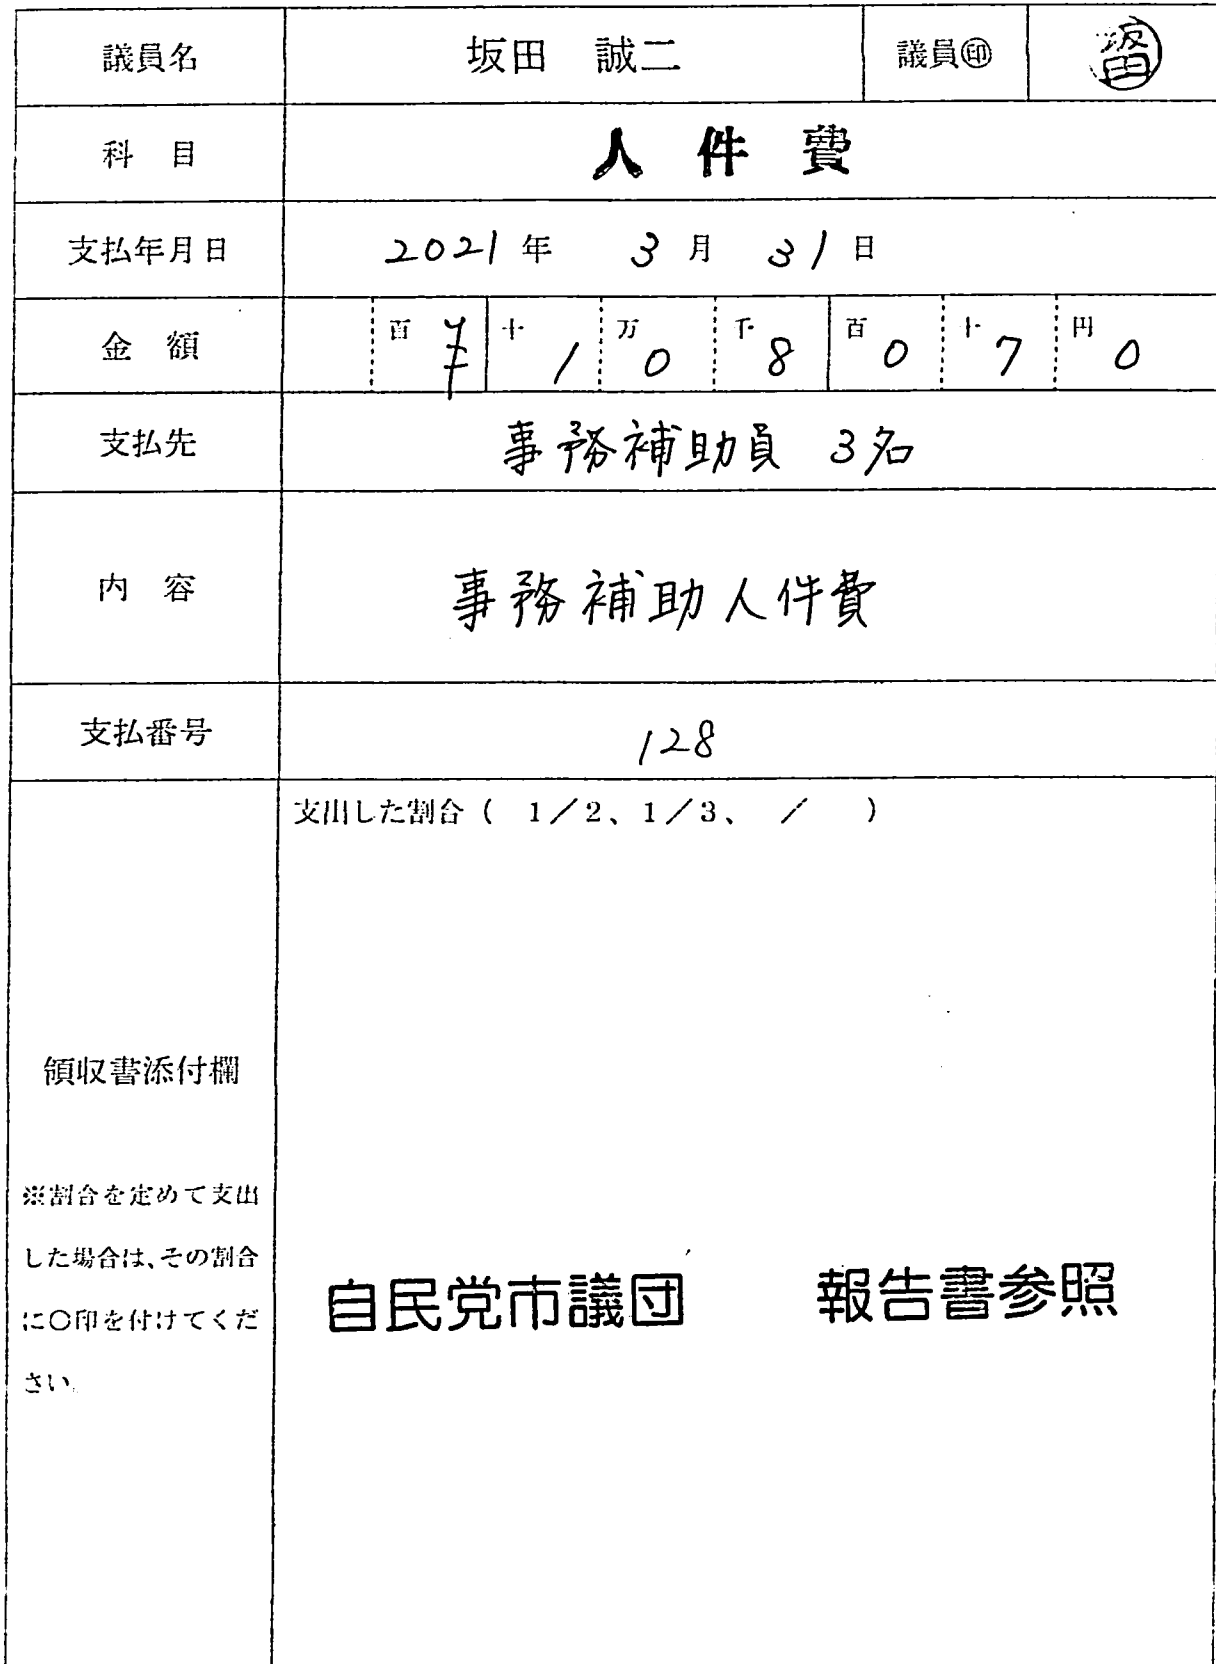 議員名 坂田 誠二 議員㊞ 坂田
科 目 人 件 費
支払年月日 2021年 3月 31日
金 額 百 ¥ 十 1 万 0 千 8 百 0 十 7 円 0
支払先 事務補助員 3名
内 容 事務補助人件費
支払番号 128
支出した割合( 1/2、1/3、 / )
領収書添付欄
※割合を定めて支出
した場合は、その割合
に〇印を付けてくだ
さい。
自民党市議団 報告書参照